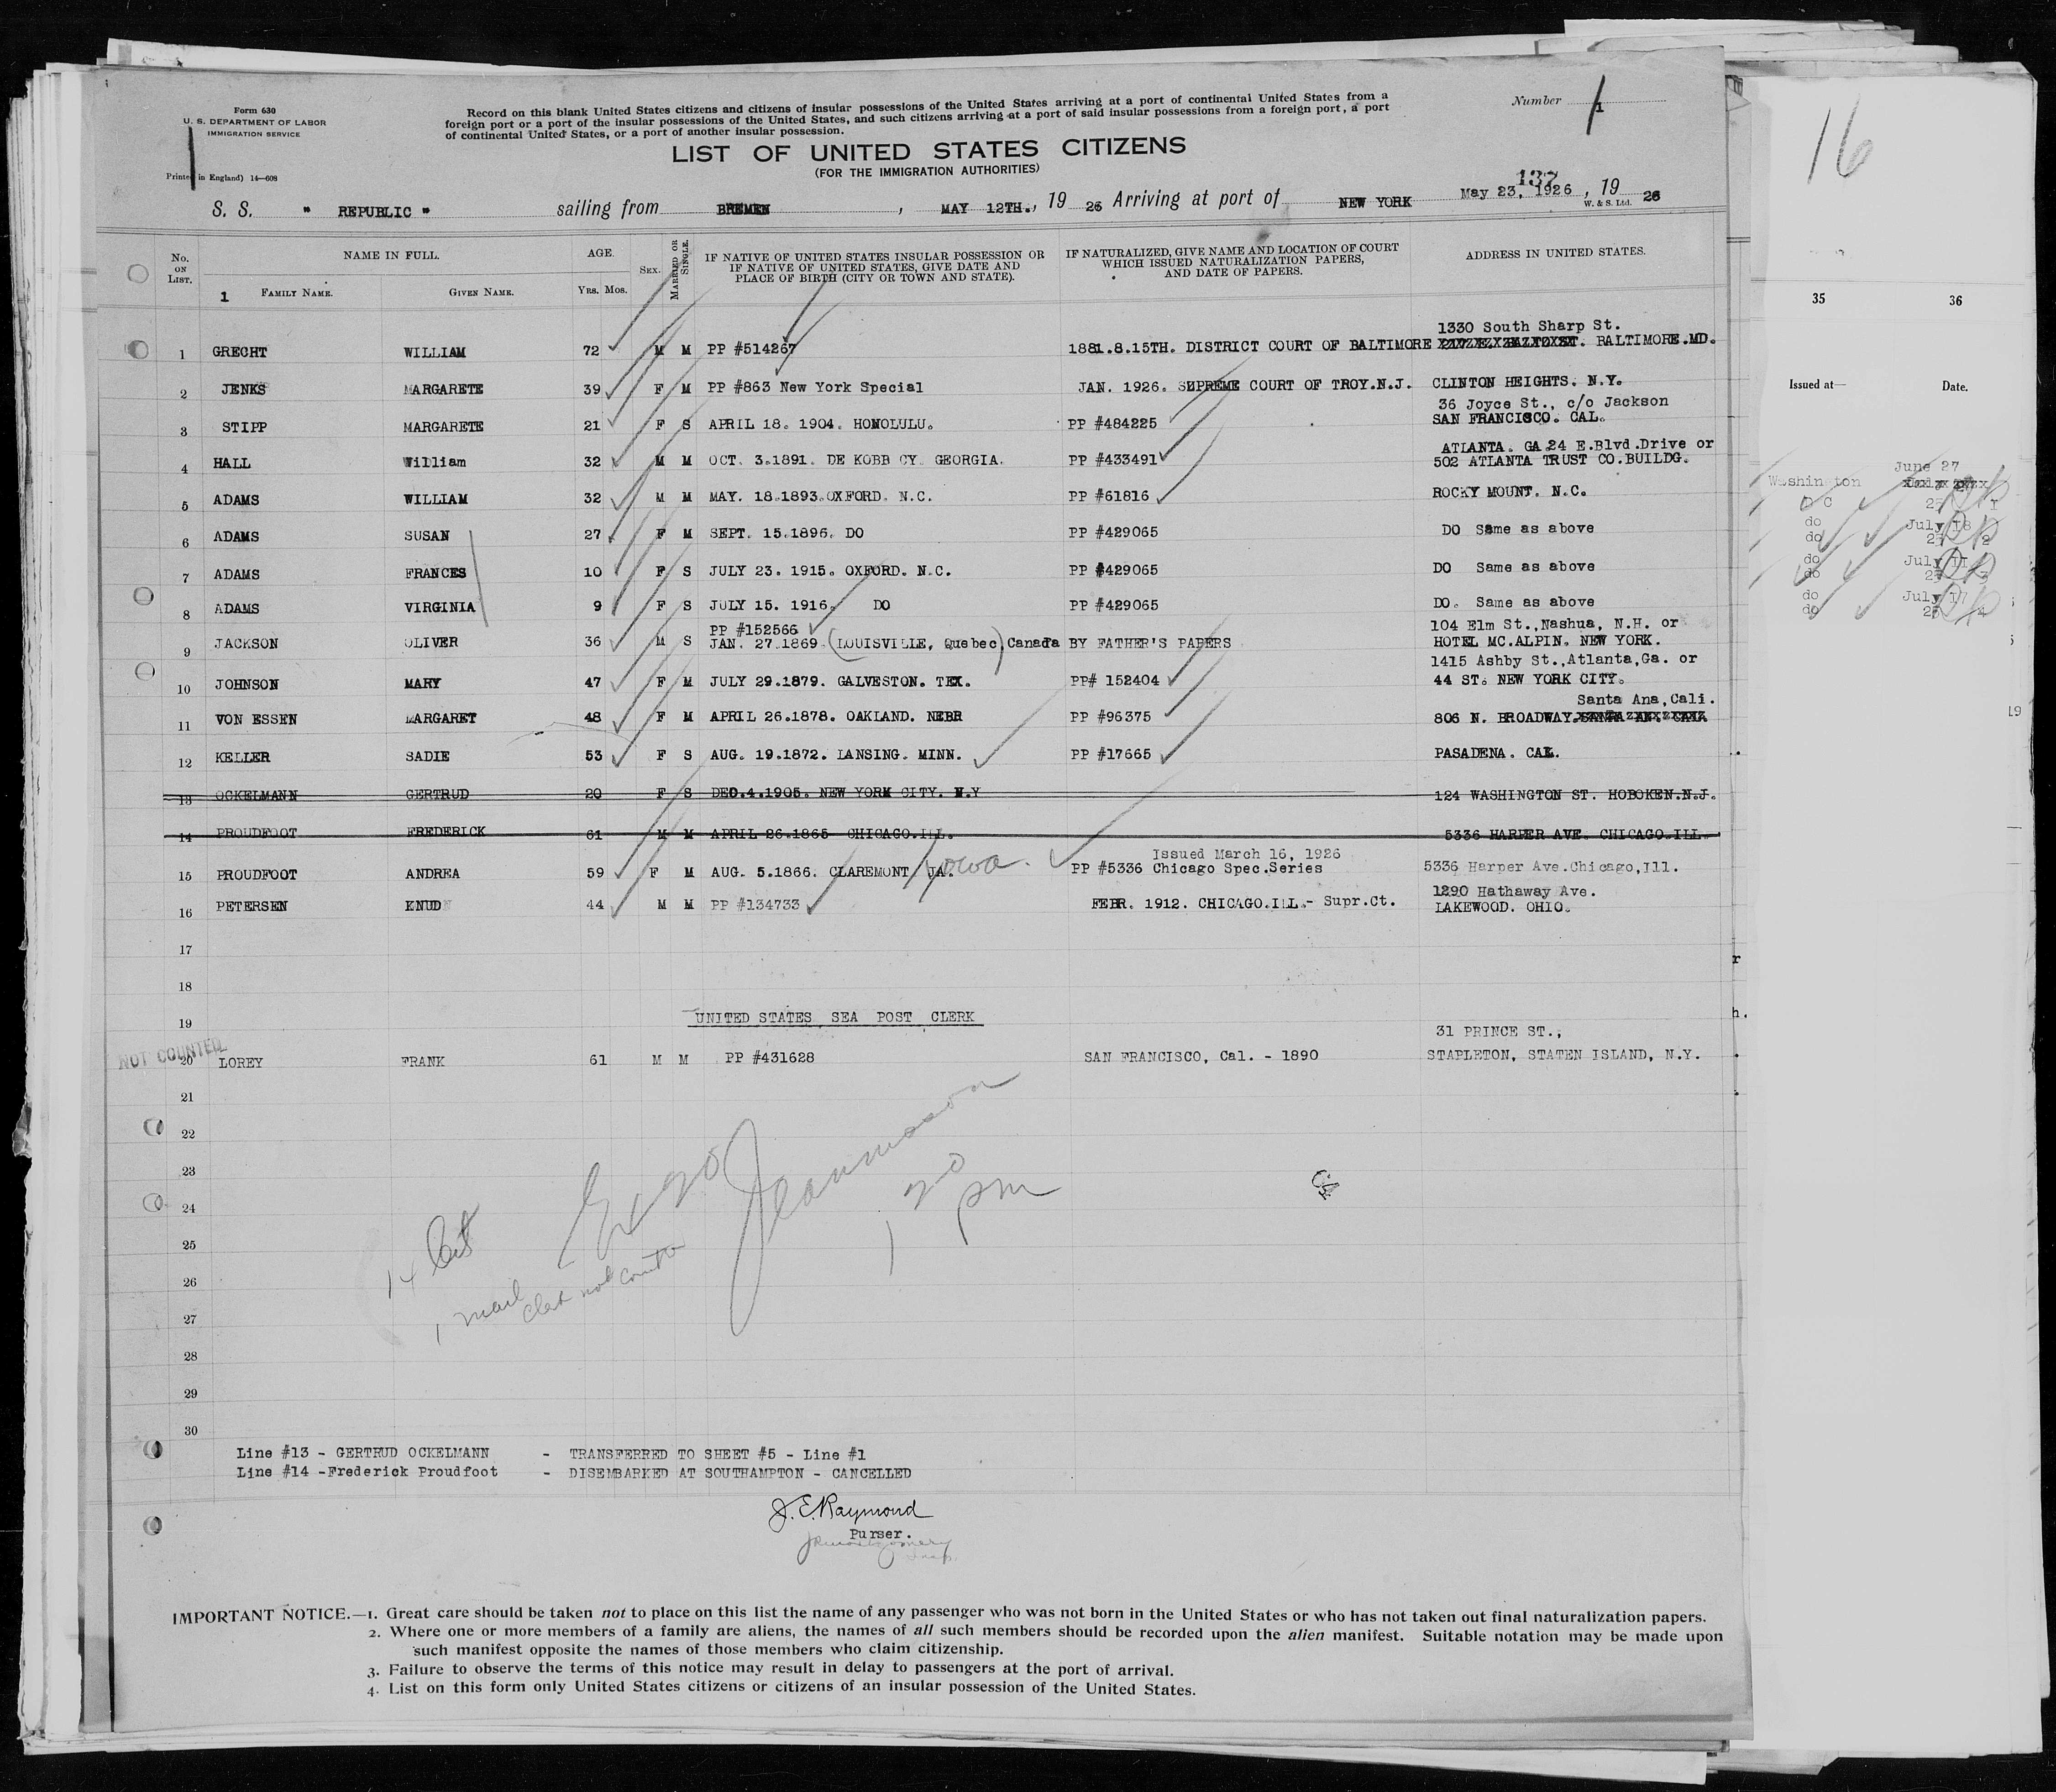 Form 630
U. S. DEPARTMENT OF LABOR
IMMIGRATION SERVICE
Printed in England) 14—608
Record on this blank United States citizens and citizens of insular possessions of the United States arriving at a port of continental United States from a
foreign port or a port of the insular possessions of the United States, and such citizens arriving at a port of said insular possessions from a foreign port, a port
of continental United States, or a port of another insular possession.
Number 1
LIST OF UNITED STATES CITIZENS
(FOR THE IMMIGRATION AUTHORITIES)
137
S. S. " REPUBLIC " sailing from BREMEN, MAY 12TH., 19 26 Arriving at port of NEW YORK May 23, 1926, 19 26
W. & S. Ltd.
No. ON LIST. NAME IN FULL. AGE. SEX. MARRIED OR SINGLE. IF NATIVE OF UNITED STATES INSULAR POSSESSION OR IF NATIVE OF UNITED STATES, GIVE DATE AND PLACE OF BIRTH (CITY OR TOWN AND STATE). IF NATURALIZED, GIVE NAME AND LOCATION OF COURT WHICH ISSUED NATURALIZATION PAPERS, AND DATE OF PAPERS. ADDRESS IN UNITED STATES.
1 FAMILY NAME. GIVEN NAME. YRS. MOS.
1330 South Sharp St.
1 GRECHT WILLIAM 72 M M PP #514267 1881.8.15TH. DISTRICT COURT OF BALTIMORE BALTIMORE.MD.
2 JENKS MARGARETE 39 F M PP #863 New York Special JAN. 1926. SUPREME COURT OF TROY.N.J. CLINTON HEIGHTS. N.Y.
36 Joyce St., c/o Jackson
3 STIPP MARGARETE 21 F S APRIL 18. 1904. HONOLULU. PP #484225 SAN FRANCISCO. CAL.
ATLANTA. GA 24 E.Blvd.Drive or
4 HALL William 32 M M OCT. 3.1891. DE KOBB CY. GEORGIA. PP #433491 502 ATLANTA TRUST CO.BUILDG.
5 ADAMS WILLIAM 32 M M MAY. 18.1893.OXFORD. N.C. PP #61816 ROCKY MOUNT. N.C.
6 ADAMS SUSAN 27 F M SEPT. 15.1896. DO PP #429065 DO Same as above
7 ADAMS FRANCES 10 F S JULY 23. 1915. OXFORD. N.C. PP #429065 DO Same as above
8 ADAMS VIRGINIA 9 F S JULY 15. 1916. DO PP #429065 DO. Same as above
PP #152566 104 Elm St.,Nashua, N.H. or
9 JACKSON OLIVER 36 M S JAN. 27.1869. (LOUISVILLE, Quebec) Canada BY FATHER'S PAPERS HOTEL MC.ALPIN. NEW YORK.
1415 Ashby St.,Atlanta,Ga. or
10 JOHNSON MARY 47 F M JULY 29.1879. GALVESTON. TEX. PP# 152404 44 ST. NEW YORK CITY.
Santa Ana,Cali.
11 VON ESSEN MARGARET 48 F M APRIL 26.1878. OAKLAND. NEBR PP #96375 806 N. BROADWAY.
12 KELLER SADIE 53 F S AUG. 19.1872. LANSING. MINN. PP #17665 PASADENA. CAL.
13 OCKELMANN GERTRUD 20 F S DEC.4.1905. NEW YORK CITY. N.Y 124 WASHINGTON ST. HOBOKEN.N.J.
14 PROUDFOOT FREDERICK 61 M M APRIL 26.1865 CHICAGO.ILL. 5336 HARPER AVE. CHICAGO.ILL
Issued March 16, 1926
15 PROUDFOOT ANDREA 59 F M AUG. 5.1866. CLAREMONT JA. Iowa. PP #5336 Chicago Spec.Series 5336 Harper Ave.Chicago,Ill.
1290 Hathaway Ave.
16 PETERSEN KNUD 44 M M PP #134733 FEBR. 1912. CHICAGO.ILL.- Supr.Ct. LAKEWOOD. OHIO.
17
18
19 UNITED STATES SEA POST CLERK
31 PRINCE ST.,
NOT COUNTED
20 LOREY FRANK 61 M M PP #431628 SAN FRANCISCO, Cal. - 1890 STAPLETON, STATEN ISLAND, N.Y.
21
22
23
24
25
26
27
28
29
30
14 Cit
1 mail
1 20
pm
Line #13 - GERTRUD OCKELMANN - TRANSFERRED TO SHEET #5 - Line #1
Line #14 -Frederick Proudfoot - DISEMBARKED AT SOUTHAMPTON - CANCELLED
J. E. Raymond
Purser.
IMPORTANT NOTICE.—1. Great care should be taken not to place on this list the name of any passenger who was not born in the United States or who has not taken out final naturalization papers.
2. Where one or more members of a family are aliens, the names of all such members should be recorded upon the alien manifest. Suitable notation may be made upon
such manifest opposite the names of those members who claim citizenship.
3. Failure to observe the terms of this notice may result in delay to passengers at the port of arrival.
4. List on this form only United States citizens or citizens of an insular possession of the United States.
16
35 36
Issued at— Date.
June 27
Washington
D C
do July 18
do 2
do July 11
do 3
do July 17
do 4